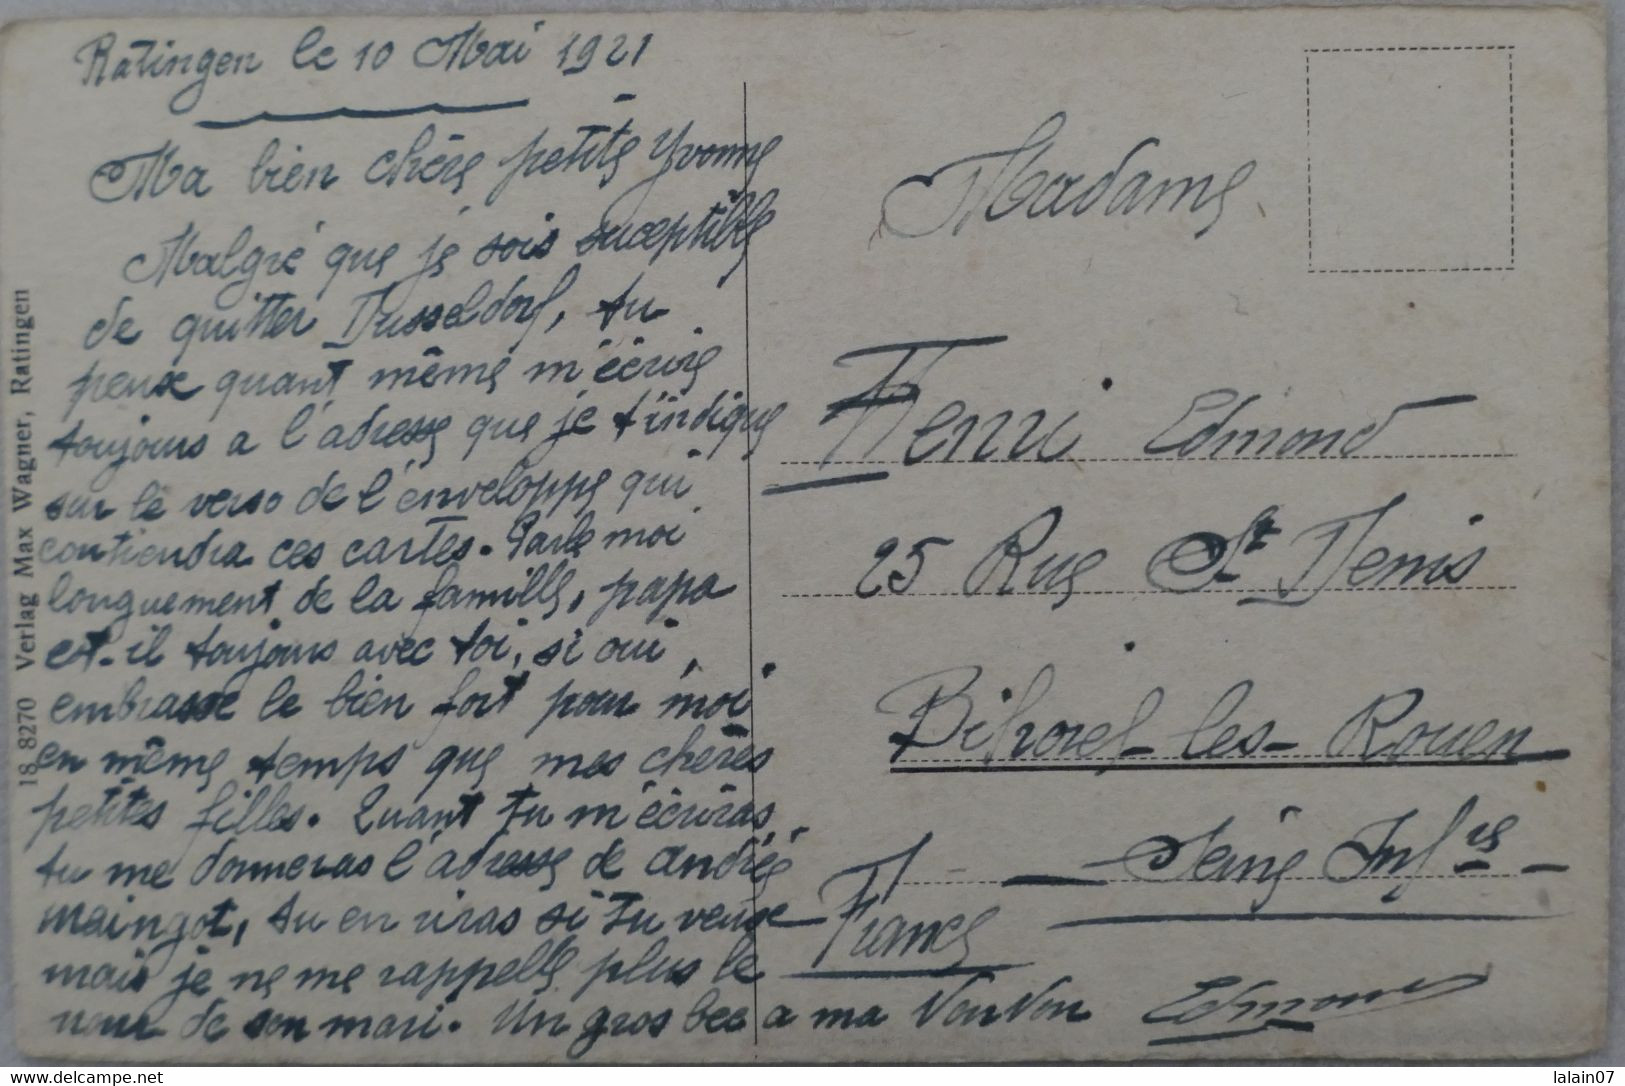 Ratingen le 10 Mai 1921
Ma bien chère petite Yvonne
Malgré que je sois suceptible
de quitter Dusseldorf, tu
peux quant même m'écrire
toujours a l'adresse que je t'indique
sur le verso de l'enveloppe qui
contiendra ces cartes. Parle moi
longuement de la famille, papa
est-il toujours avec toi, si oui,
embrasse le bien fort pour moi
en même temps que mes chères
petites filles. Quant tu m'écriras
tu me donneras l'adresse de andrée
maingot, tu en riras si tu veux
mais je ne me rappelle plus le
nom de son mari. Un gros bec a ma VonVon Edmond
Madame
Henri Edmond
25 Rue St Denis
Bihorel-les-Rouen
Seine Infre
France
18 8270 Verlag Max Wagner, Ratingen
lalain07